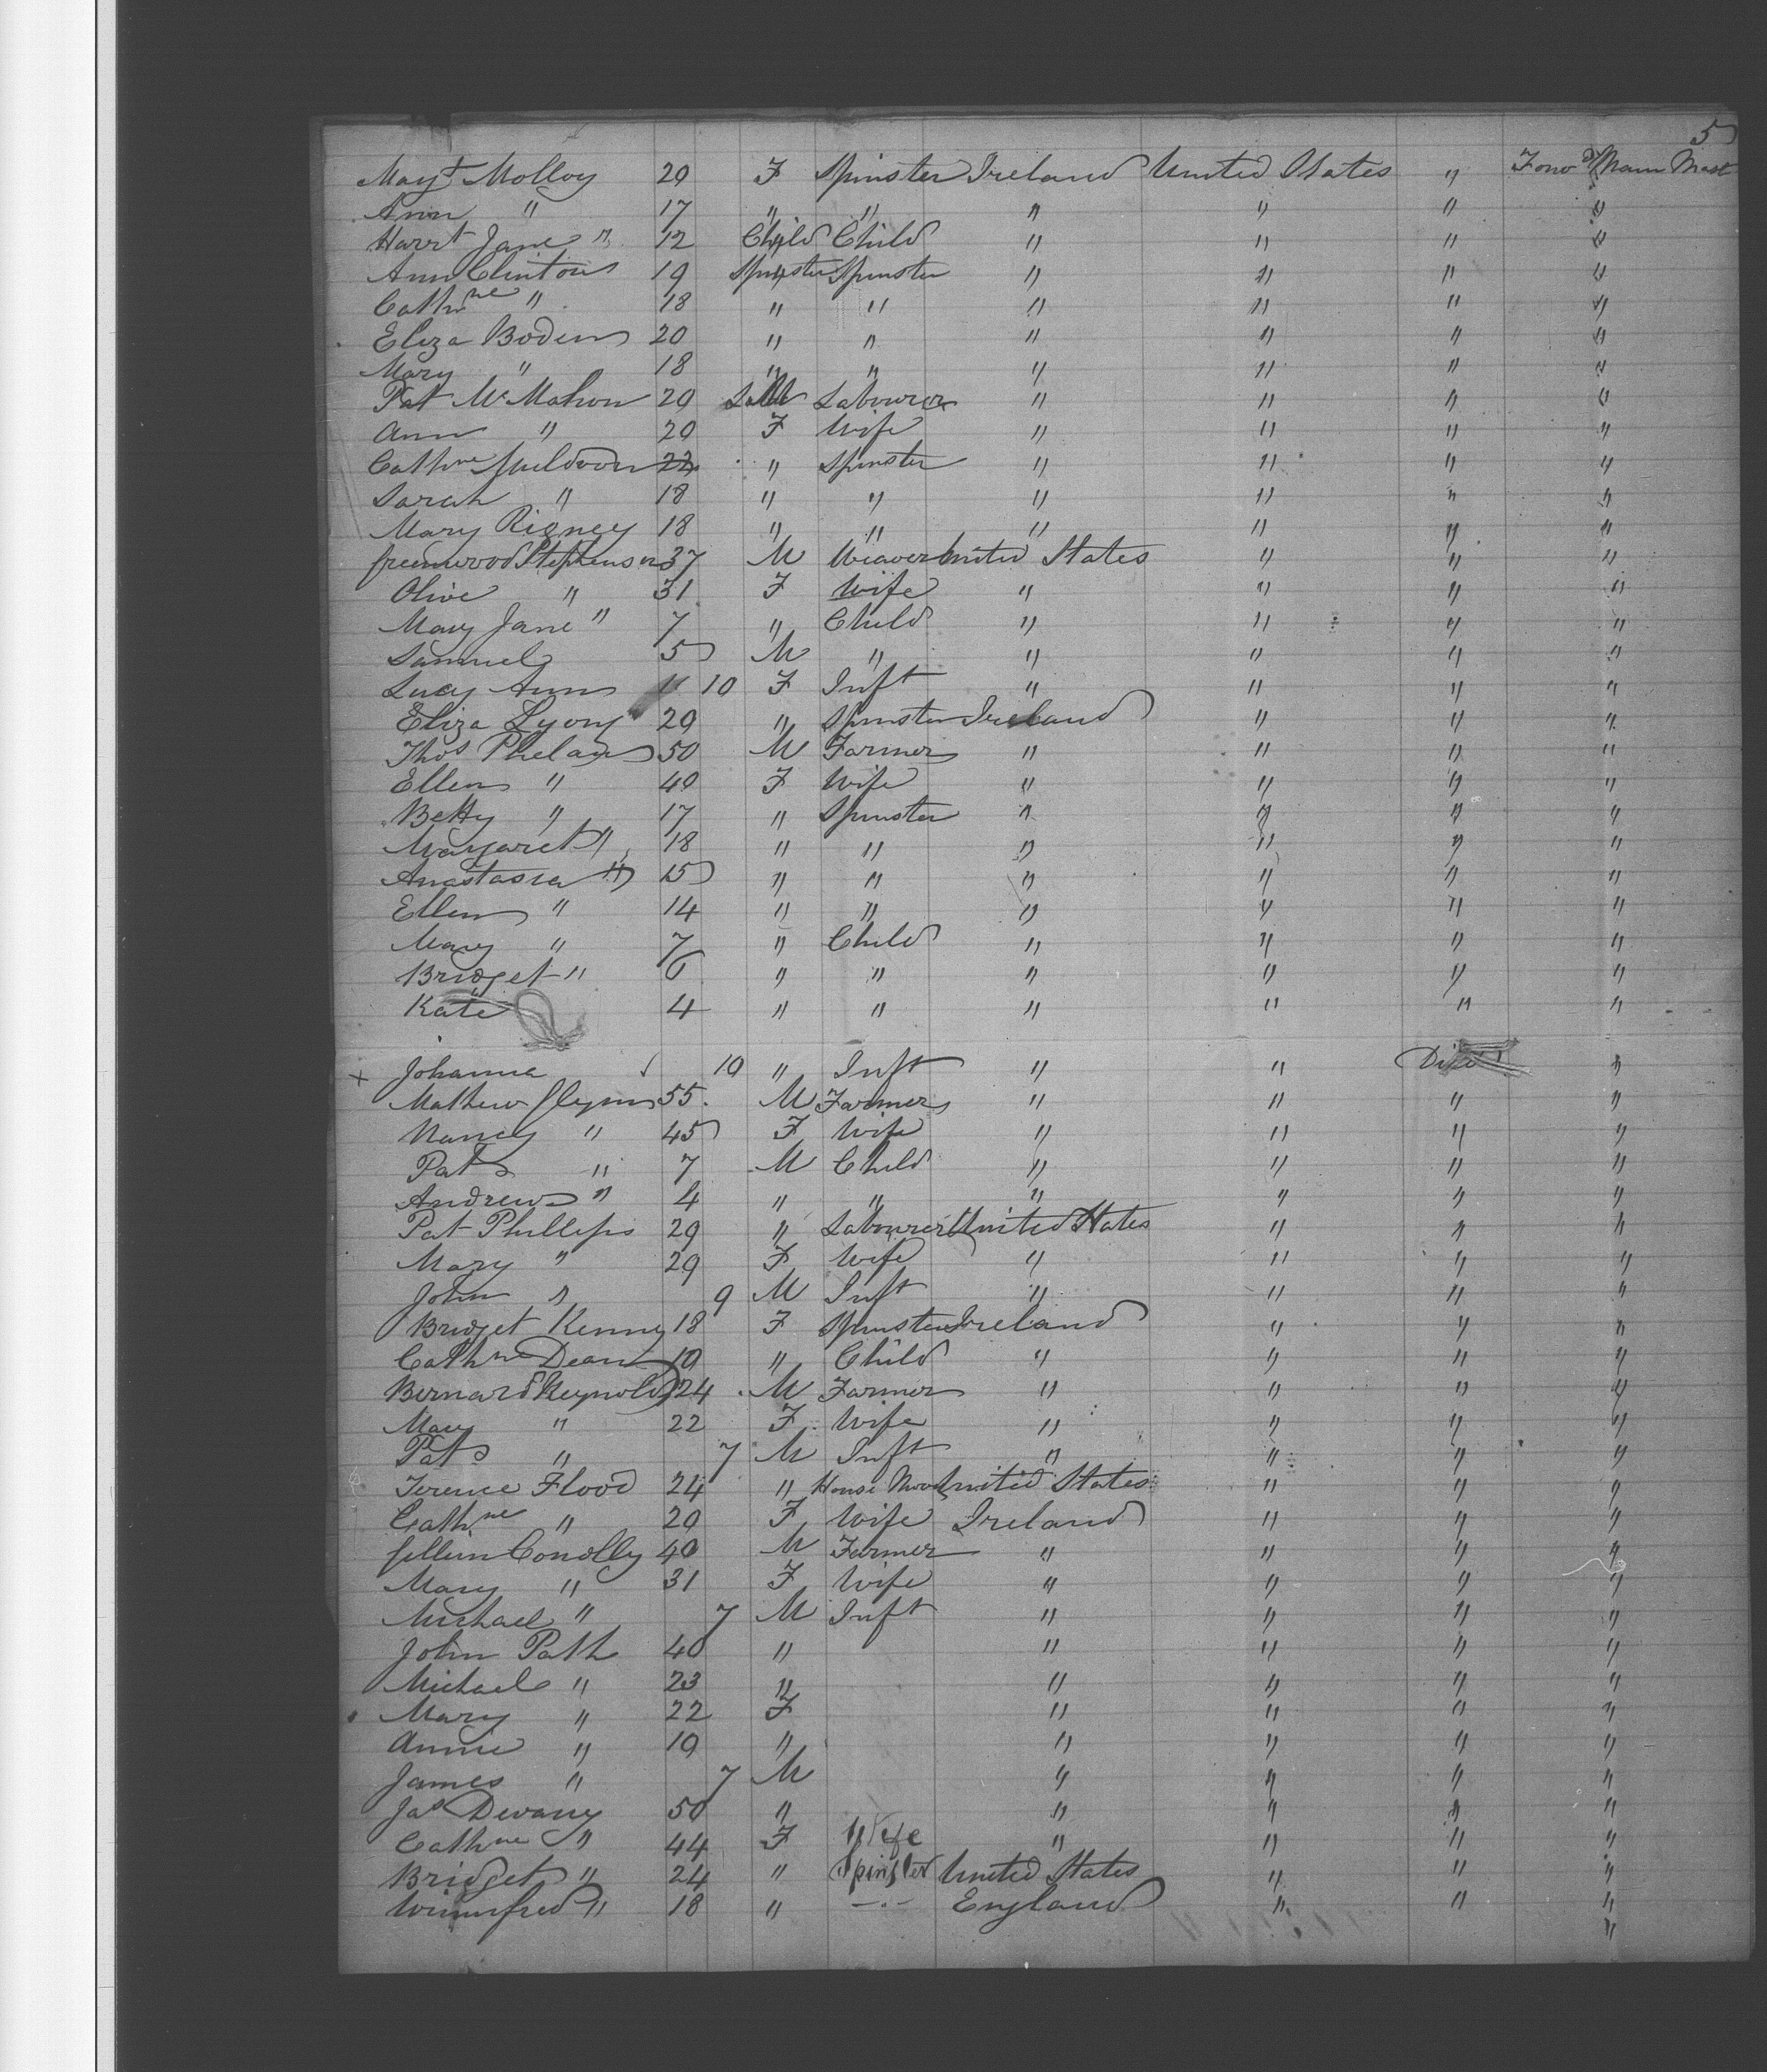 5
Mayt Molloy 20 F Spinster Ireland United States " Forwd Main Mast
Ann " 17 " " " " " "
Harrt Jane " 12 Child Child " " " "
Ann Clinton 19 Spinster Spinster " " " "
Cathne " 18 " " " " " "
Eliza Boden 20 " " " " " "
Mary " 18 " " " " " "
Pat McMahon 20 M Labourer " " " "
Ann " 20 F Wife " " " "
Cathne Muldoon 22 " Spinster " " " "
Sarah " 18 " " " " " "
Mary Rigney 18 " " " " " "
Greenwood Stephenson 37 M Weaver United States " " "
Olive " 31 F Wife " " " "
Mary Jane " 7 " Child " " " "
Samuel 5 M " " " " "
Lucy Ann 10 F Inft " " " "
Eliza Lyons 20 " Spinster Ireland " " "
Thos Phelan 50 M Farmer " " " "
Ellen " 40 F Wife " " " "
Betty " 17 " Spinster " " " "
Margaret " 18 " " " " " "
Anastasia " 15 " " " " " "
Ellen " 14 " " " " " "
Mary " 7 " Child " " " "
Bridget " 6 " " " " " "
Kate " 4 " " " " " "
+ Johanna 10 " Inft " " Died "
Mathew Glynn 55 M Farmer " " " "
Nancy " 45 F Wife " " " "
Pat " 7 M Child " " " "
Andrew " 4 " " " " " "
Pat Phillips 29 " Labourer United States " " "
Mary " 29 F Wife " " " "
John " 9 M Inft " " " "
Bridget Kenny 18 F Spinster Ireland " " "
Cathne Dean 10 " Child " " " "
Bernard Reynolds 24 M Farmer " " " "
Mary " 22 F Wife " " " "
Pat " 7 M Inft " " " "
Terence Flood 24 " House United States " " "
Cathne " 20 F Wife Ireland " " "
Conolly 40 M Farmer " " " "
Mary " 31 F Wife " " " "
Michael " 7 M Inft " " " "
John Path 40 " " " " "
Michael " 23 " " " " "
Mary " 22 F " " " "
Annie " 19 " " " " "
James " 7 M " " " "
Jas Devany 50 " " " " "
Cathne " 44 F Wife " " " "
Bridget " 24 " Spinster United States " " "
Winnifred " 18 " -"- England " " "
"